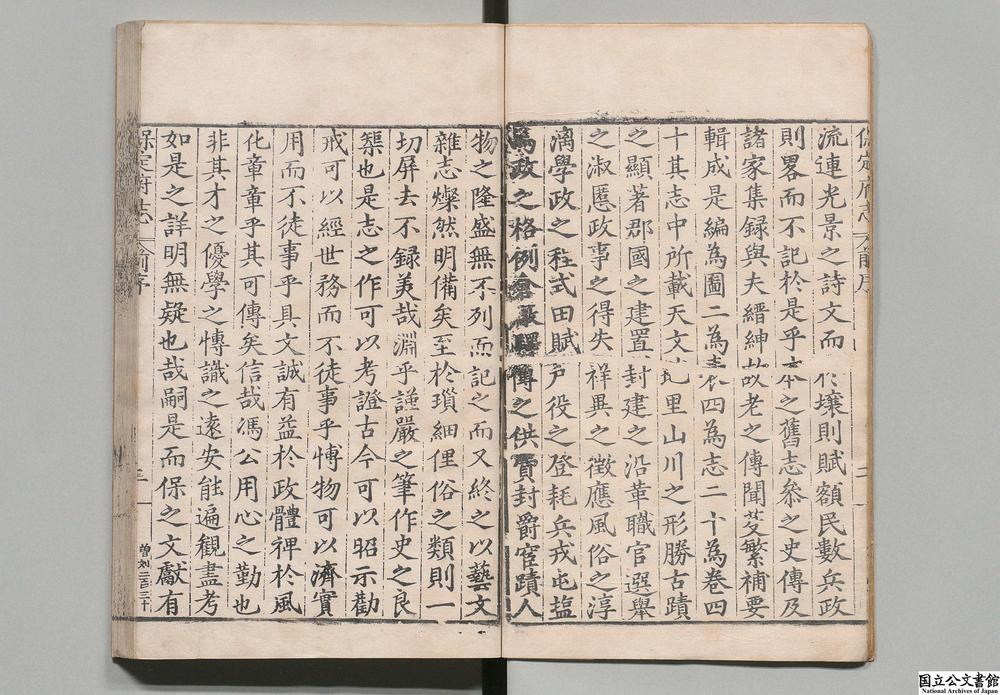 保定府志 前序 二
流連光景之詩文而 壤則賦額民數兵政
則畧而不記於是乎 本之舊志叅之史傳及
諸家集録與夫縉紳 故老之傳聞芟繁補要
輯成是編為圖二為表 四為志二十為卷四
十其志中所載天文 里山川之形勝古蹟
之顯著郡國之建置 封建之沿革職官選舉
之淑慝政事之得失 祥異之徵應風俗之淳
漓學政之程式田賦 户役之登耗兵戎屯塩
為政之格例倉 驛傳之供賈封爵宦蹟人
物之隆盛無不列而記之而又終之以藝文
雜志燦然明備矣至於瑣細俚俗之類則一
切屏去不録美哉淵乎謹嚴之筆作史之良
榘也是志之作可以考證古今可以昭示勸
戒可以經世務而不徒事乎博物可以濟實
用而不徒事乎具文誠有益於政體裨於風
化章章乎其可傳矣信哉馮公用心之勤也
非其才之優學之博識之遠安能遍觀盡考
如是之詳明無疑也哉嗣是而保之文獻有
保定府志 前序 三
曾刘三百三十
国立公文書館
National Archives of Japan